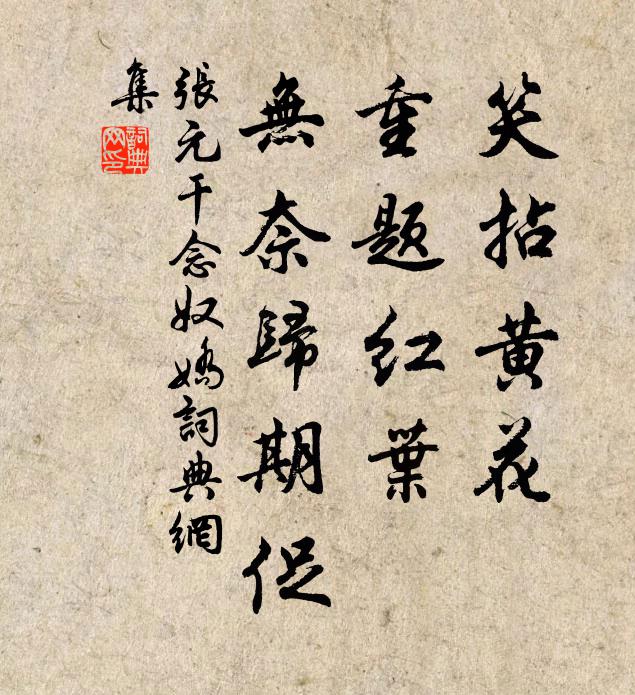 笑拈黄花
重題紅葉
無奈歸期促
張元干念奴嬌詞典網
集
詞典
网印